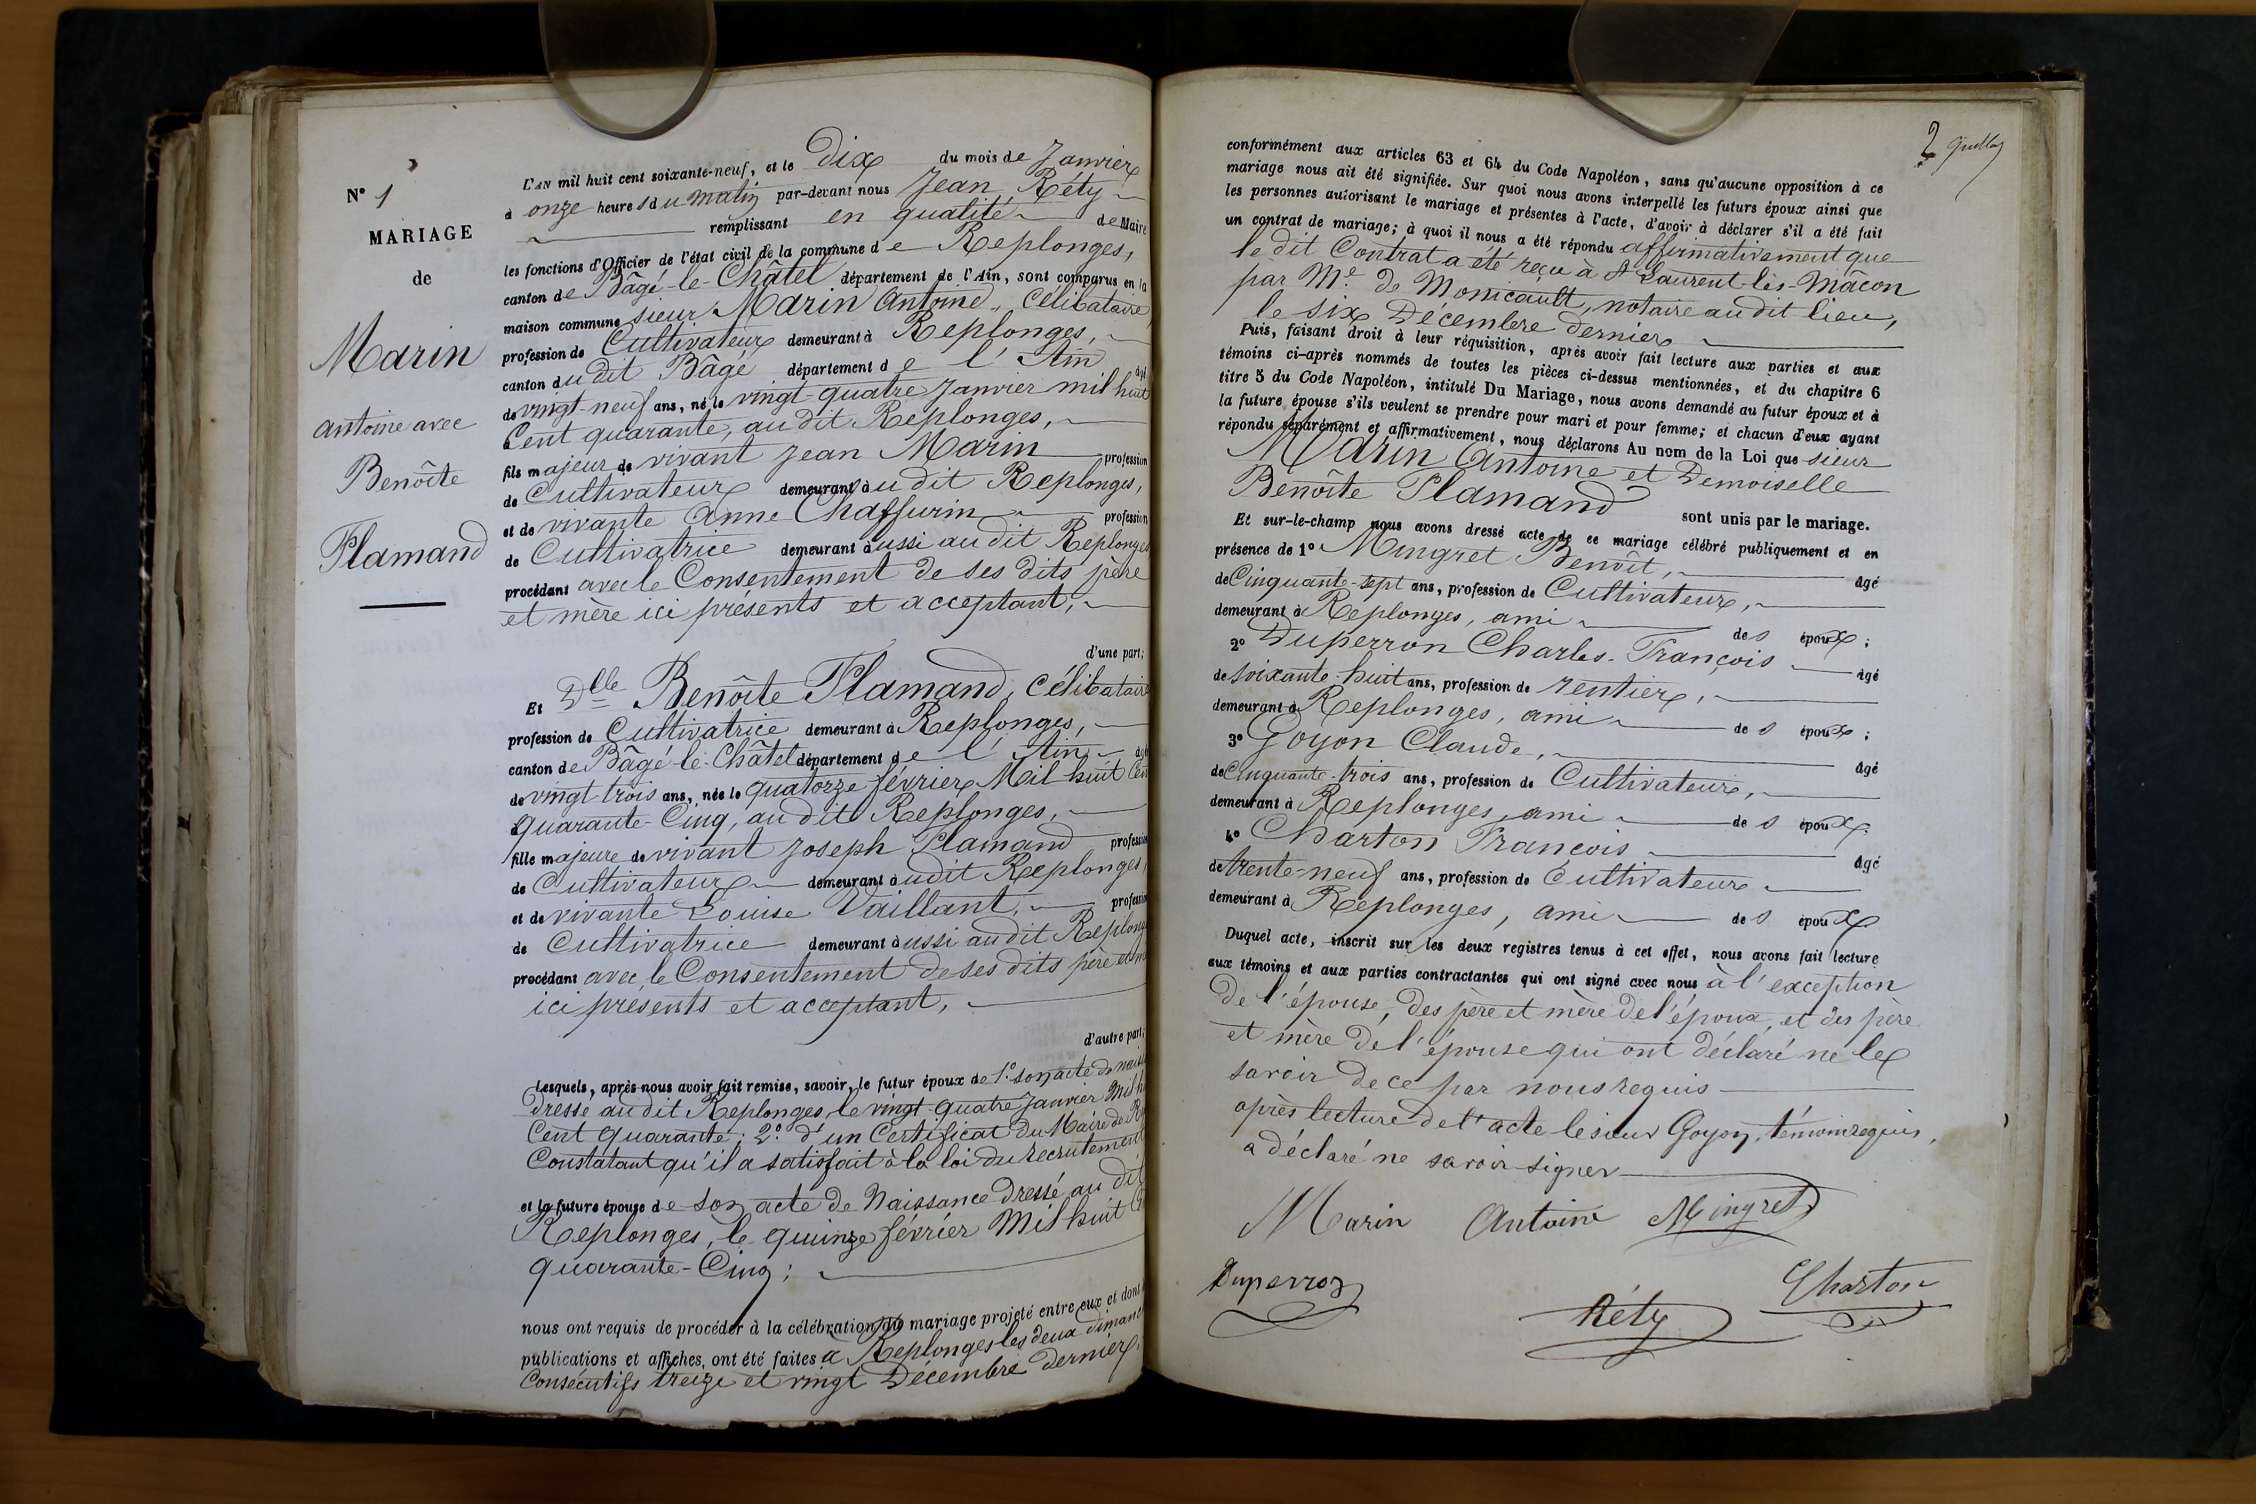 N° 1
MARIAGE
de
Marin
antoine avec
Benoîte
Flamand
L'AN mil huit cent soixante-neuf, et le Dix du mois de Janvier
à onze heures du matin par-devant nous Jean Réty
remplissant en qualité de Maire
les fonctions d'Officier de l'état civil de la commune de Replonges,
canton de Bâgé-le-Châtel département de l'Ain, sont comparus en la
maison commune sieur Marin Antoine, Célibataire,
profession de Cultivateur demeurant à Replonges,
canton du dit Bâgé département de l'Ain âgé
de vingt-neuf ans, né le vingt-quatre Janvier mil huit
Cent quarante, au dit Replonges,
fils majeur de vivant Jean Marin profession
de Cultivateur demeurant audit Replonges,
et de vivante Anne Chaffurin profession
de Cultivatrice demeurant aussi au dit Replonges
procédant avec le Consentement de ses dits père
et mère ici présents et acceptant,
d'une part;
Et Dlle Benôite Flamand, Célibataire
profession de Cultivatrice demeurant à Replonges,
canton de Bâgé-le-Châtel département de l'Ain âgé
de vingt-trois ans, née le quatorze février Mil huit Cent
quarante-Cinq, au dit Replonges,
fille majeure de vivant Joseph Flamand profession
de Cultivateur demeurant audit Replonges,
et de vivante Louise Vaillant, profession
de Cultivatrice demeurant aussi au dit Replonges
procédant avec le Consentement de ses dits père et m
ici présents et acceptant,
d'autre part;
Lesquels, après nous avoir fait remise, savoir, le futur époux de 1° son acte de naiss
dressé au dit Replonges, le vingt-quatre Janvier Mil h
Cent quarante; 2° d'un Certificat du Maire de Rep
Constatant qu'il a satisfait à la loi du recrutement
et la future épouse de son acte de Naissance dressé au dit
Replonges, le quinze février Mil huit C
quarante-Cinq;
nous ont requis de procéder à la célébration du mariage projeté entre eux et dont
publications et affiches, ont été faites à Replonges les deux dimanc
Consécutifs treize et vingt Décembre dernier,
2
conformément aux articles 63 et 64 du Code Napoléon, sans qu'aucune opposition à ce
mariage nous ait été signifiée. Sur quoi nous avons interpellé les futurs époux ainsi que
les personnes autorisant le mariage et présentes à l'acte, d'avoir à déclarer s'il a été fait
un contrat de mariage; à quoi il nous a été répondu affirmativement que
le dit Contrat a été reçu à St Laurent-lès-Mâcon
par Me de Monicault, notaire au dit lieu,
le six Décembre dernier
Puis, faisant droit à leur réquisition, après avoir fait lecture aux parties et aux
témoins ci-après nommés de toutes les pièces ci-dessus mentionnées, et du chapitre 6
titre 5 du Code Napoléon, intitulé Du Mariage, nous avons demandé au futur époux et à
la future épouse s'ils veulent se prendre pour mari et pour femme; et chacun d'eux ayant
répondu séparément et affirmativement, nous déclarons Au nom de la Loi que sieur
Marin Antoine et Demoiselle
Benôite Flamand sont unis par le mariage.
Et sur-le-champ nous avons dressé acte de ce mariage célébré publiquement et en
présence de 1° Mingret Benoît, âgé
de Cinquante-sept ans, profession de Cultivateur,
demeurant à Replonges, ami des époux;
2° Duperron Charles-François âgé
de soixante-huit ans, profession de rentier,
demeurant à Replonges, ami des époux;
3° Goyon Claude, âgé
de Cinquante-trois ans, profession de Cultivateur,
demeurant à Replonges, ami des époux.
4° Charton François âgé
de trente-neuf ans, profession de Cultivateur
demeurant à Replonges, ami des époux
Duquel acte, inscrit sur les deux registres tenus à cet effet, nous avons fait lecture
aux témoins et aux parties contractantes qui ont signé avec nous à l'exception
de l'épouse, des père et mère de l'époux, et des père
et mère de l'épouse qui ont déclaré ne le
savoir de ce par nous requis
après lecture de l'acte le sieur Goyon, témoin requis,
a déclaré ne savoir signer
Marin Antoine Mingret
Duperron
Réty
Charton